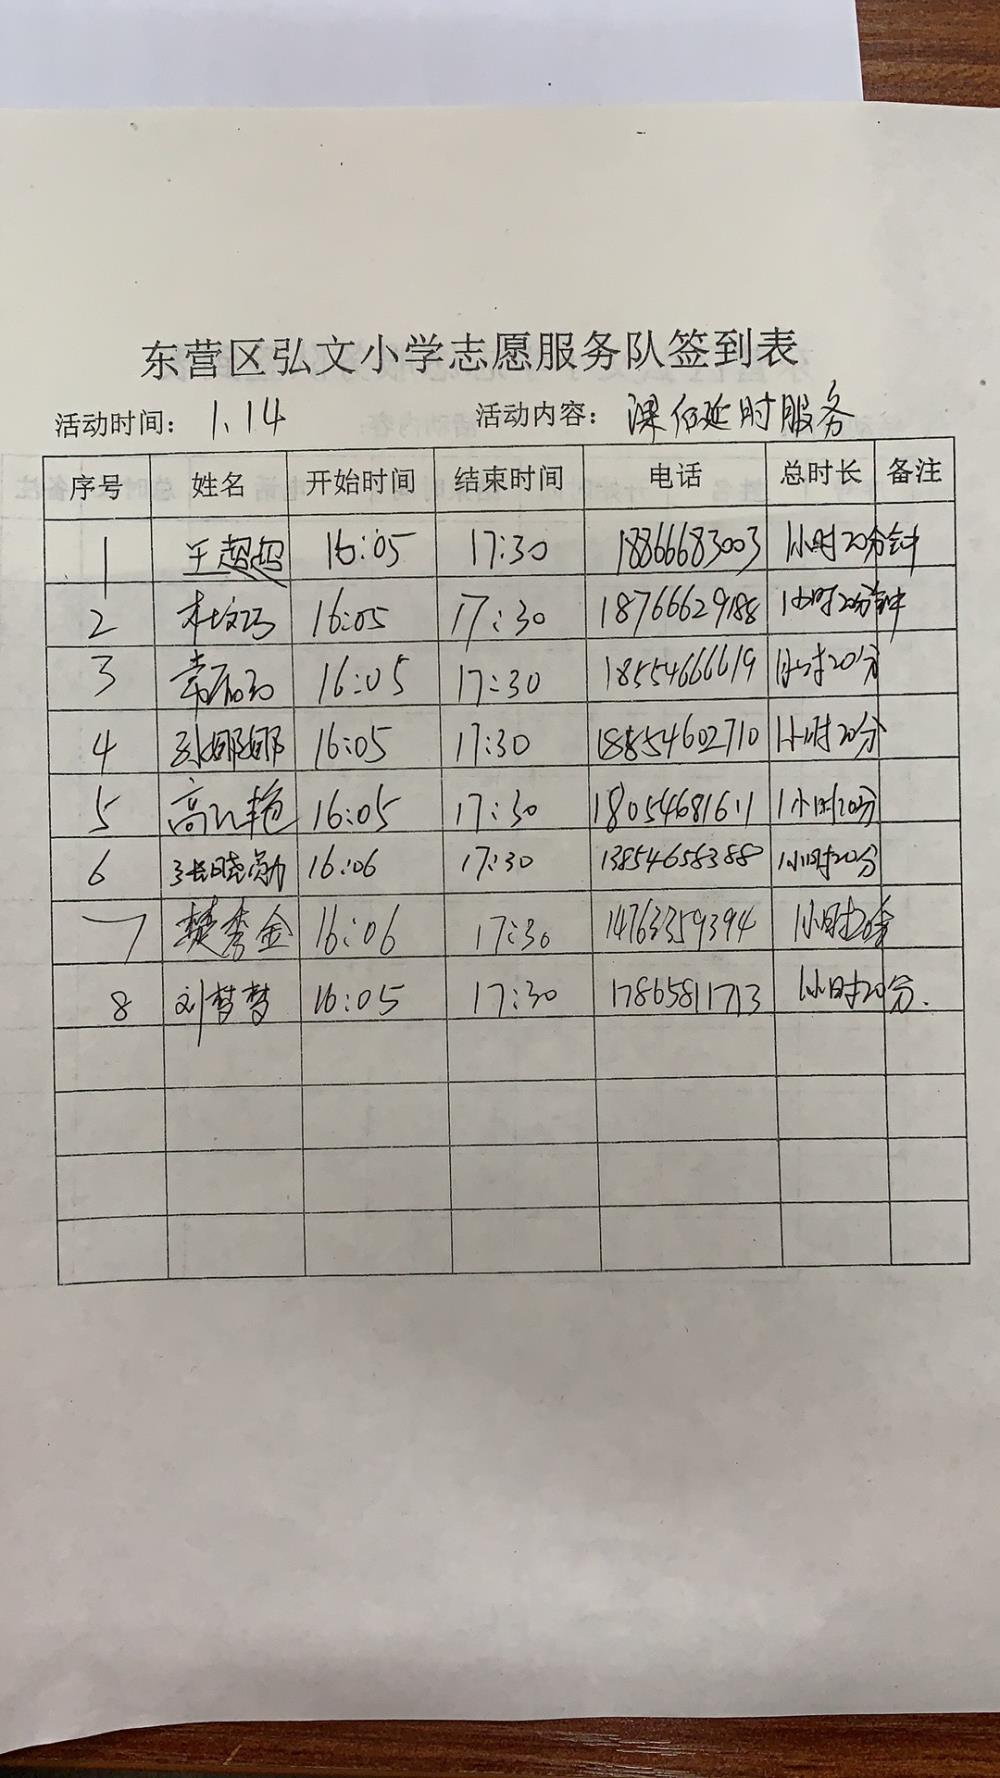 东营区弘文小学志愿服务队签到表
活动时间： 1.14 活动内容： 课后延时服务
序号 姓名 开始时间 结束时间 电话 总时长 备注
1 王超超 16:05 17:30 18366683003 1小时20分钟
2 杜文巧 16:05 17:30 18766629188 1小时20分钟
3 16:05 17:30 18554666619 1小时20分
4 孙娜娜 16:05 17:30 18854602710 1小时20分
5 高红艳 16:05 17:30 18054681611 1小时20分
6 张晓勋 16:06 17:30 13854658388 1小时20分
7 樊秀金 16:06 17:30 14763359394 1小时20分
8 刘梦梦 16:05 17:30 17865811713 1小时20分.